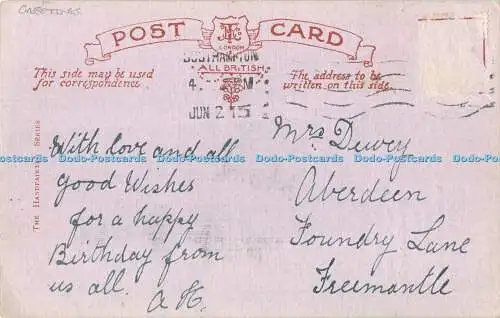 GREETINGS.
POST CARD
LONDON
ALL BRITISH
This side may be used
for correspondence.
The address to be
written on this side.
SOUTHAMPTON
4. PM
JUN 2 15
THE HANDPAINTED SERIES
With love and all
good Wishes
for a happy
Birthday from
us all. A H.
Mrs Dewey
Aberdeen
Foundry Lane
Freemantle
Postcards Dodo-Postcards Dodo-Postcards Dodo-Postcards Dodo-Postcards Dodo-Postcards